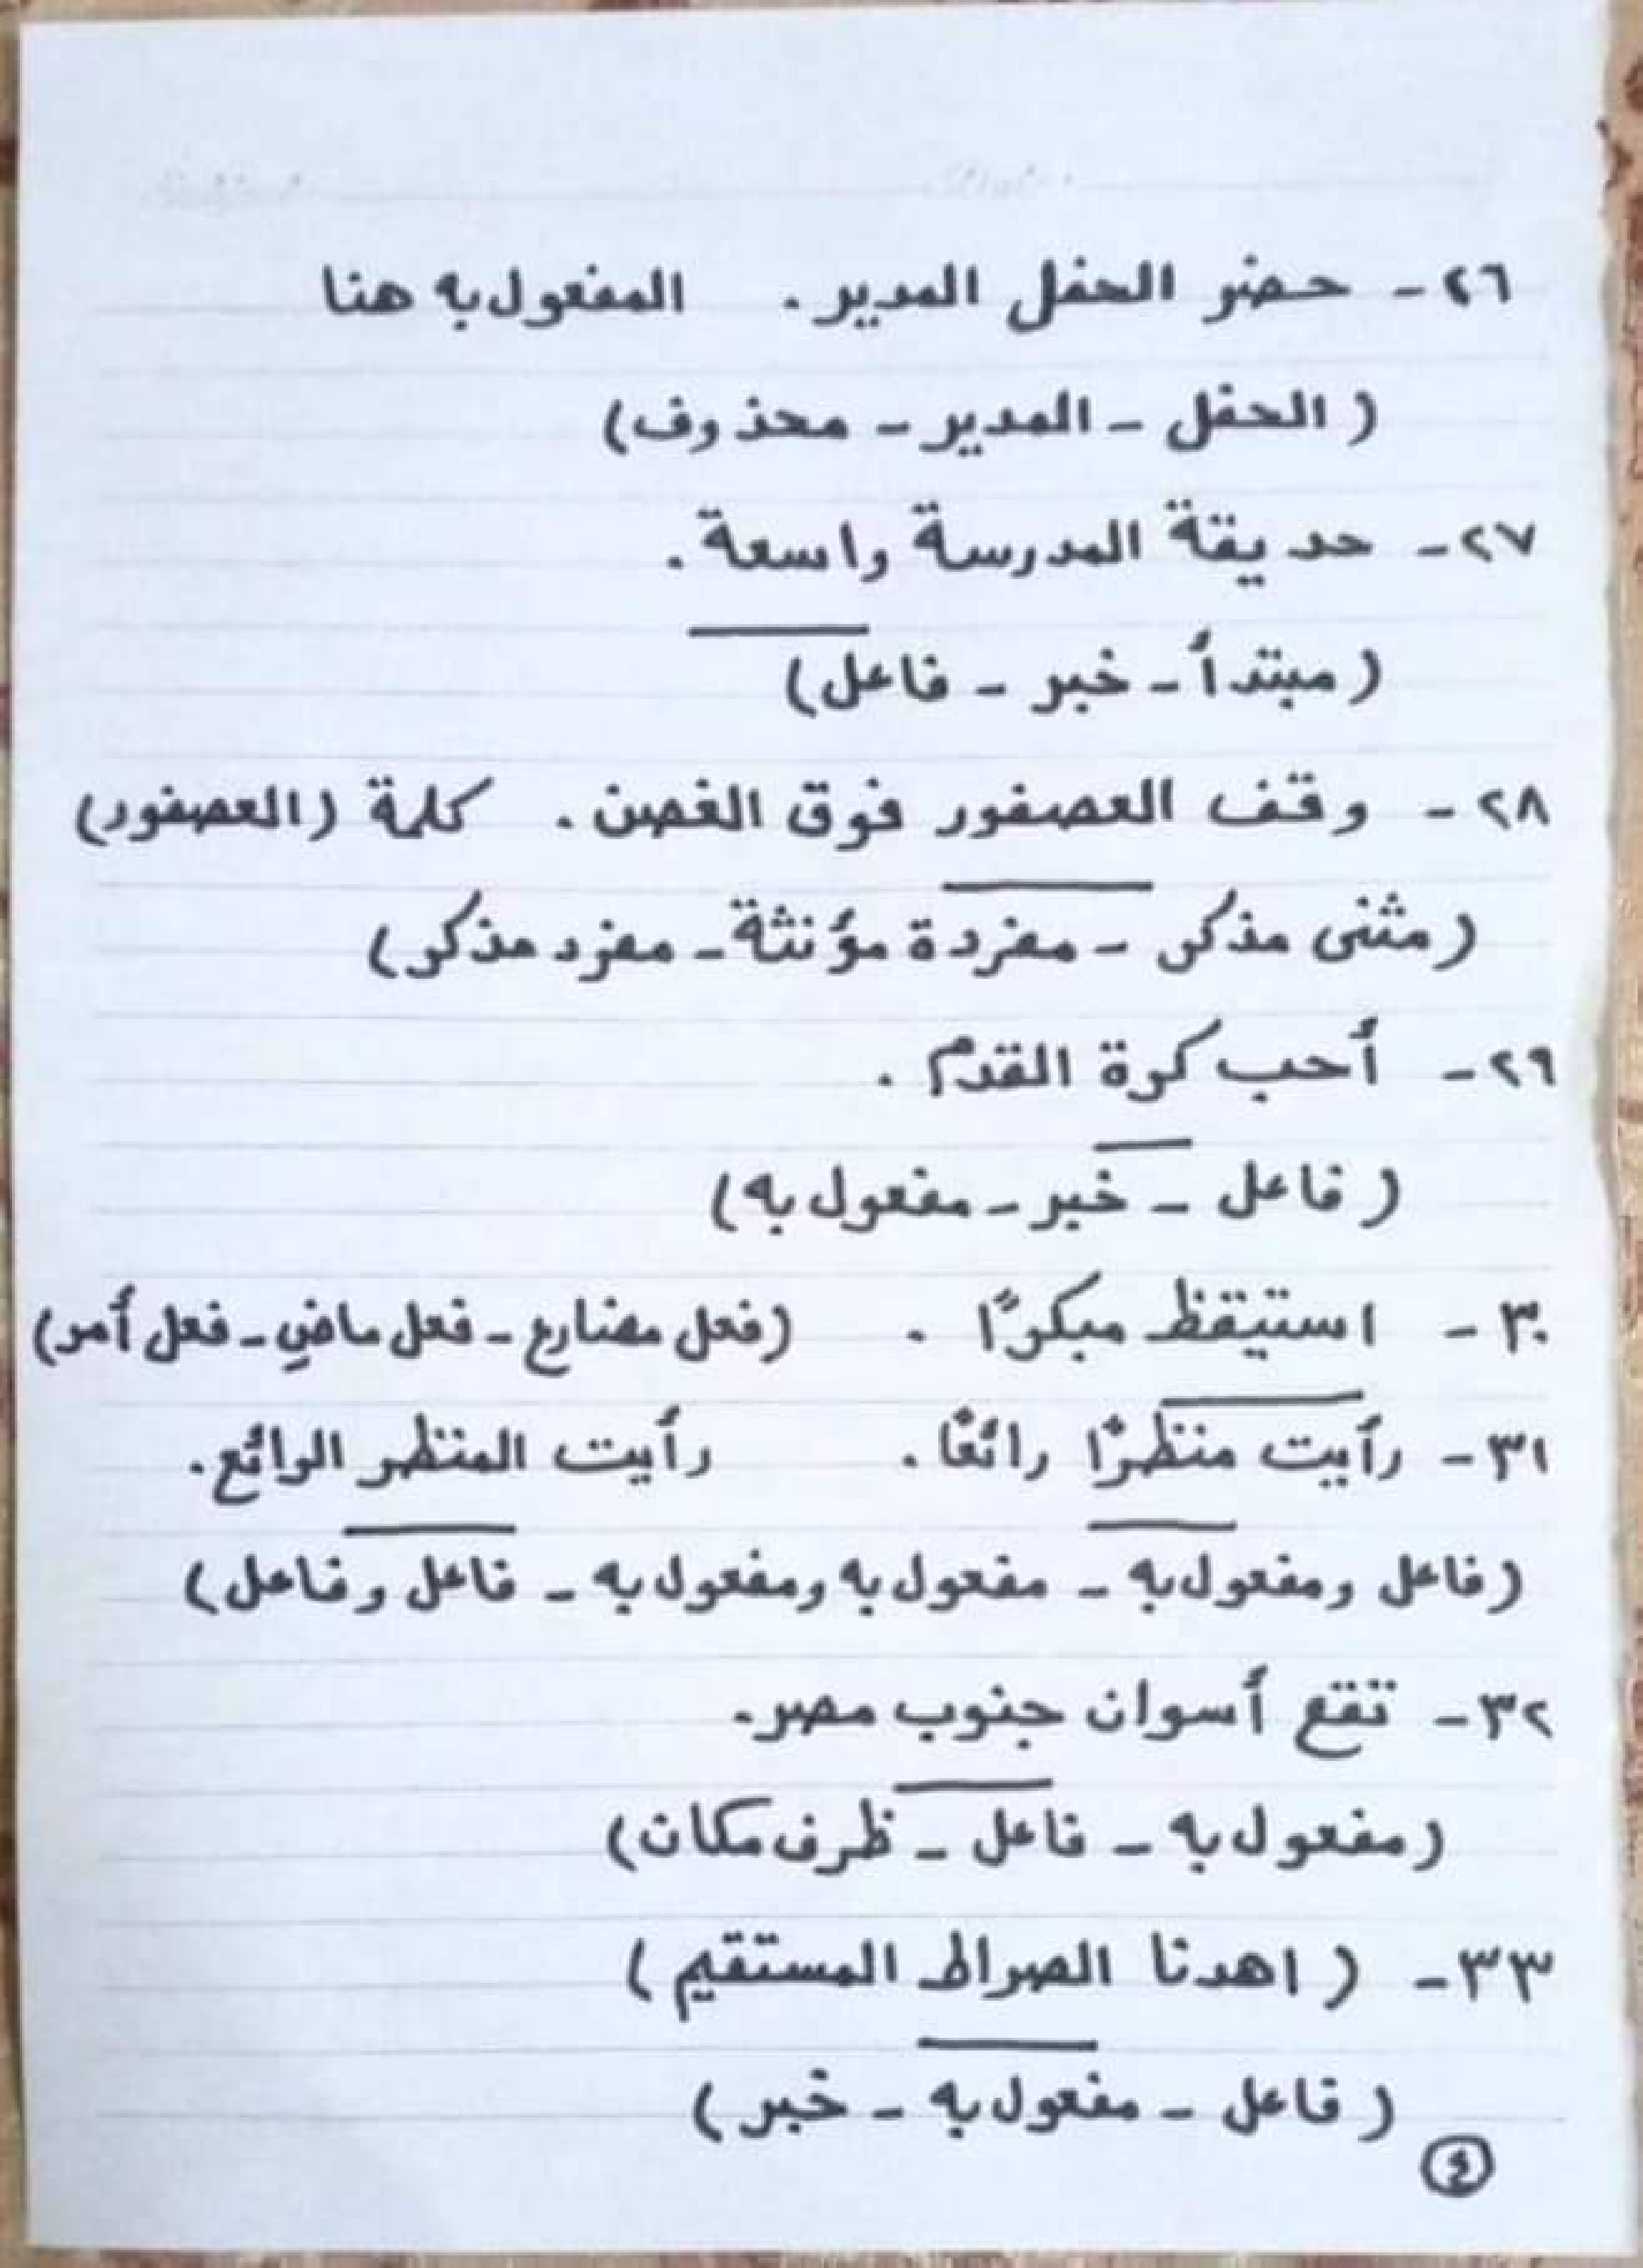 ٢٦- حضر الحفل المدير. المفعول به هنا
(الحفل - المدير - محذوف)
٢٧- حديقة المدرسة واسعة.
(مبتدأ - خبر - فاعل)
٢٨- وقف العصفور فوق الغصن. كلمة (العصفور)
(مثنى مذكر - مفردة مؤنثة - مفرد مذكر)
٢٩- أحب كرة القدم.
(فاعل - خبر - مفعول به)
٣٠- استيقظ مبكرًا. (فعل مضارع - فعل ماضٍ - فعل أمر)
٣١- رأيت منظرًا رائعًا. رأيت المنظر الرائع.
(فاعل ومفعول به - مفعول به ومفعول به - فاعل وفاعل)
٣٢- تقع أسوان جنوب مصر.
(مفعول به - فاعل - ظرف مكان)
٣٣- (اهدنا الصراط المستقيم)
(فاعل - مفعول به - خبر)
٤